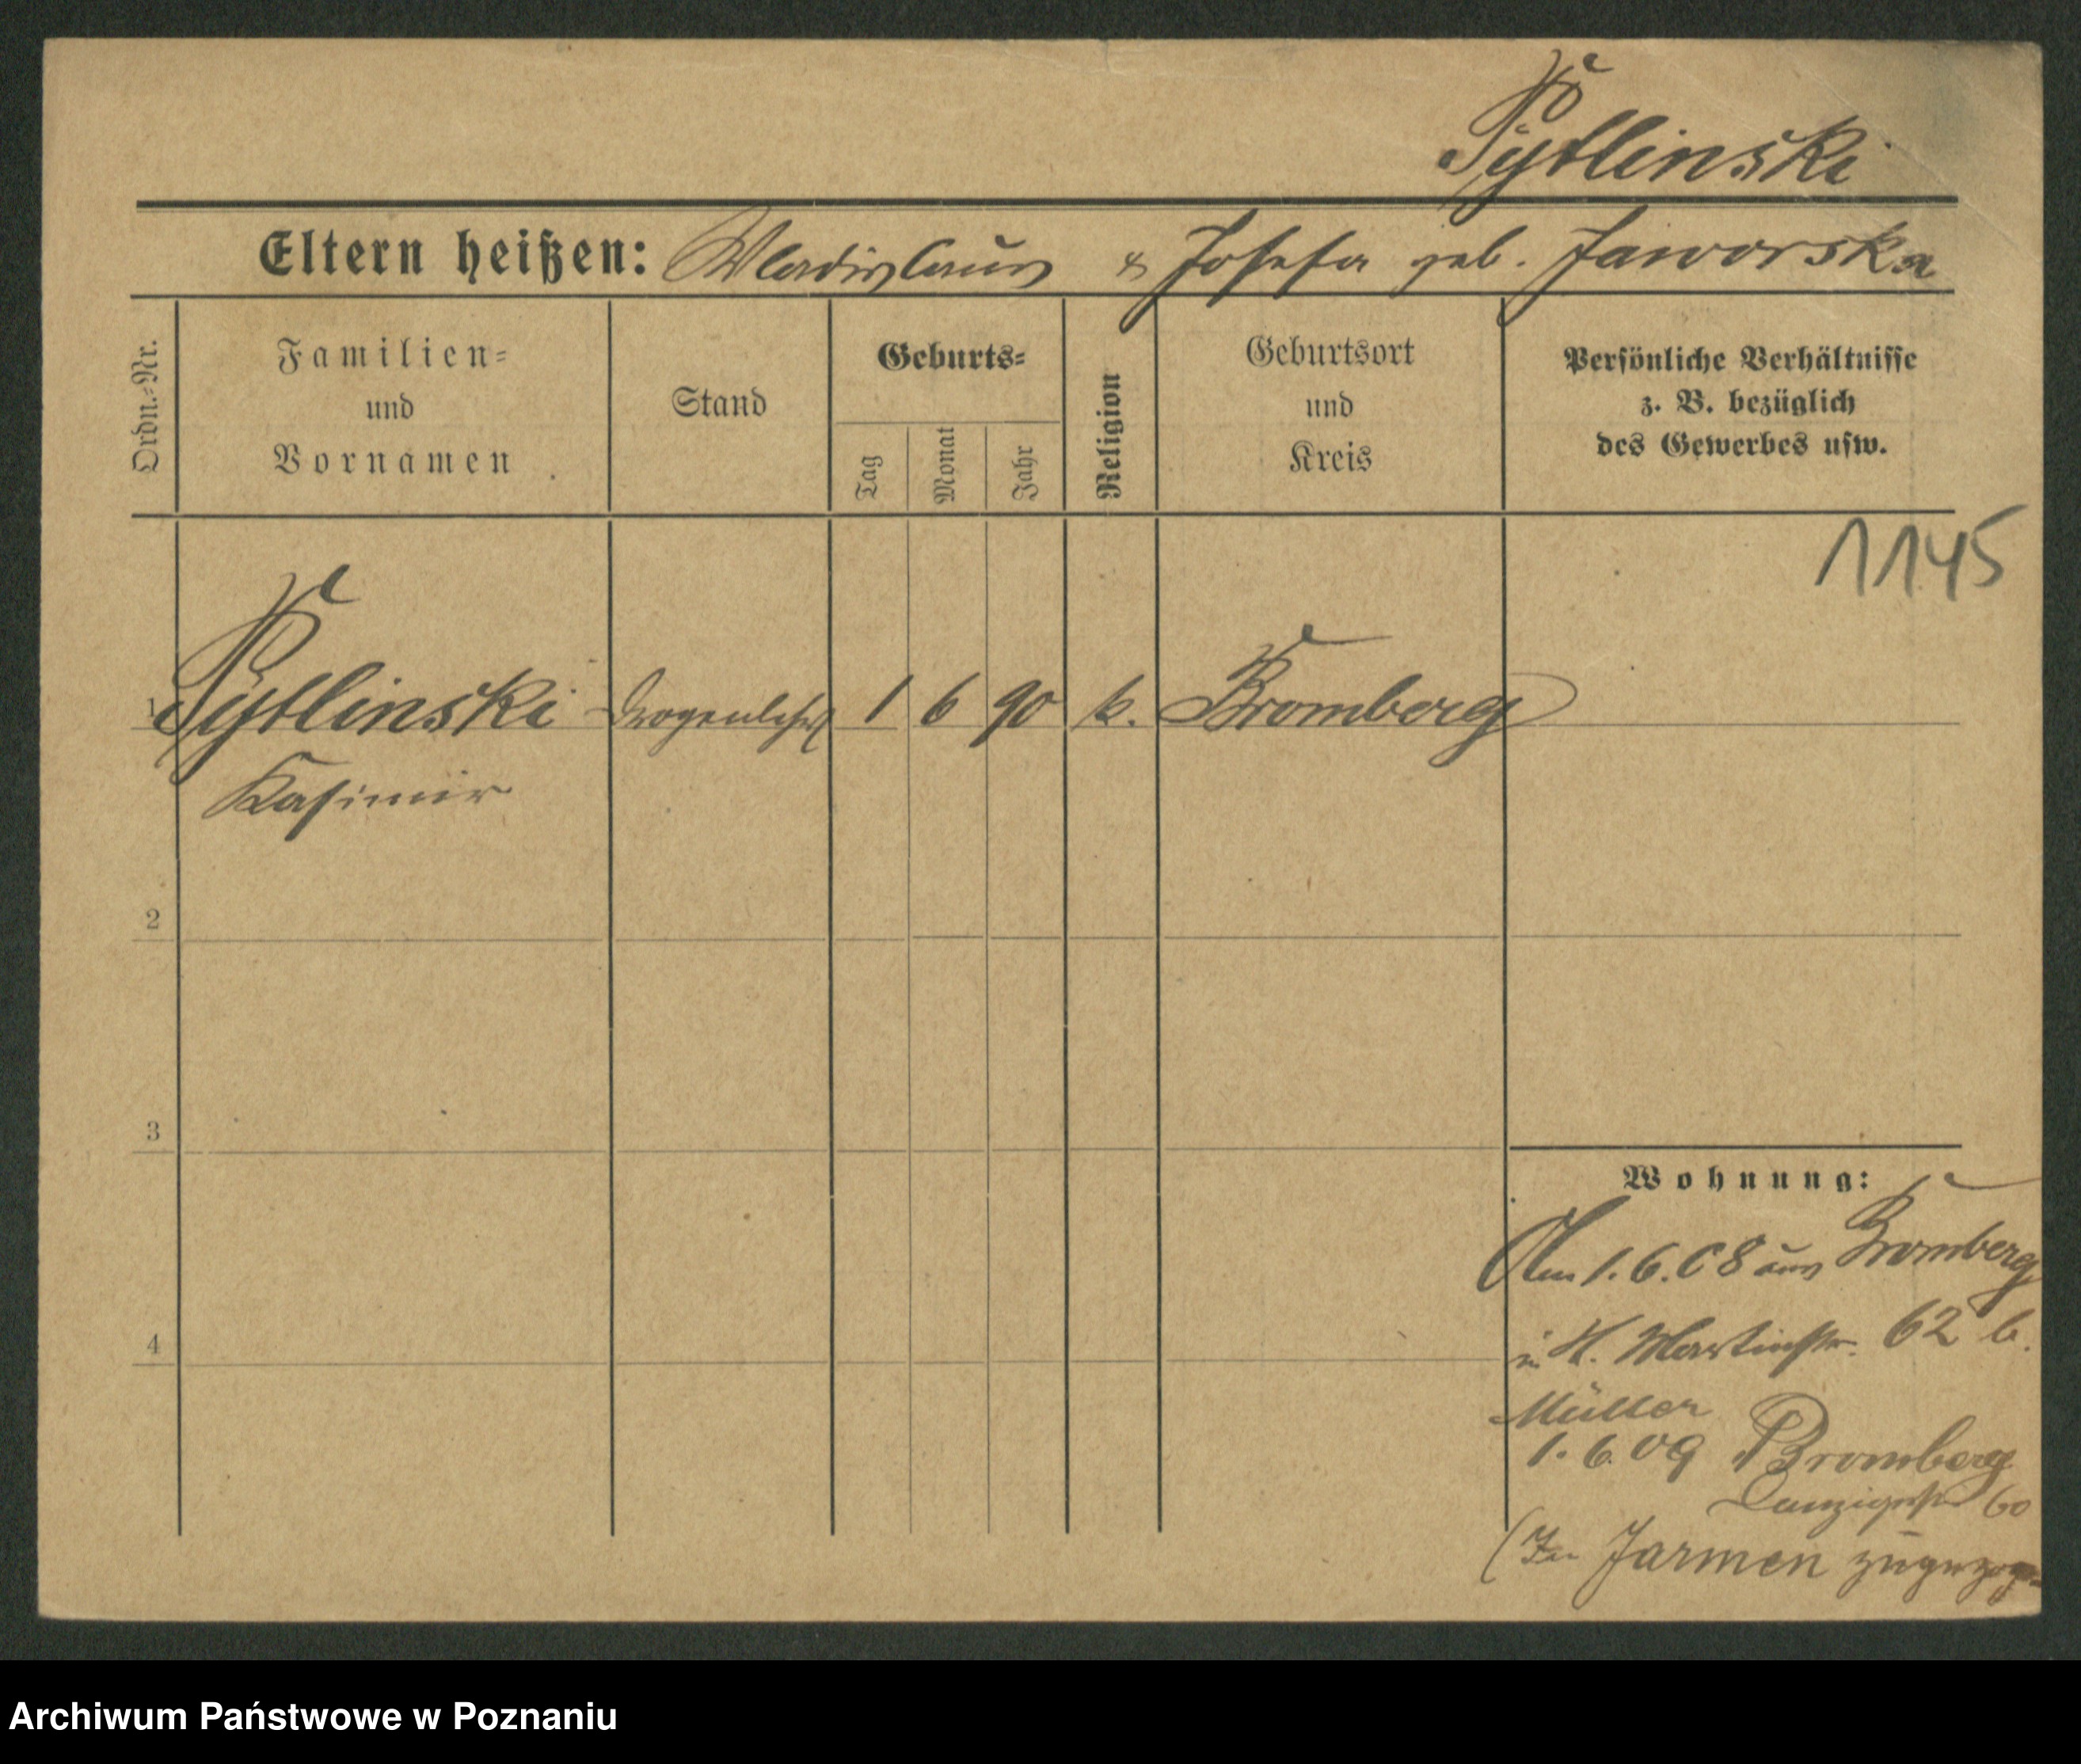 Pytlinski
Eltern heißen: Wladislaus & Josefa geb. Jaworska
Ordn.=Nr.
Familien=
und
Vornamen
Stand
Geburts=
Tag
Monat
Jahr
Religion
Geburtsort
und
Kreis
Persönliche Verhältnisse
z. B. bezüglich
des Gewerbes usw.
1145
1 Pytlinski 1 6 90 k. Bromberg
Kasimir
2
3
4
Wohnung:
Am 1.6.08 aus Bromberg
Martinstr. 62 b.
Müller
1.6.09 Bromberg
Danzigerstr 60
(In Jarmen zugezogen
Archiwum Państwowe w Poznaniu